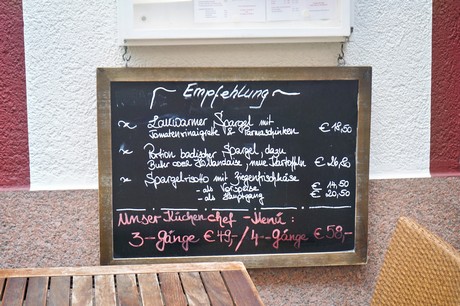 ~ Empfehlung ~
x Lauwarmer Spargel mit
Tomatenvinaigrette & Parmaschinken € 18,50
x Portion badischer Spargel, dazu
Butter oder Hollandaise, neue Kartoffeln
x Spargelrisotto mit Ziegenfrischkäse
- als Vorspeise € 14,50
- als Hauptgang € 20,50
Unser Küchenchef - Menü :
3-Gänge € 49,-/ 4-Gänge € 58,-